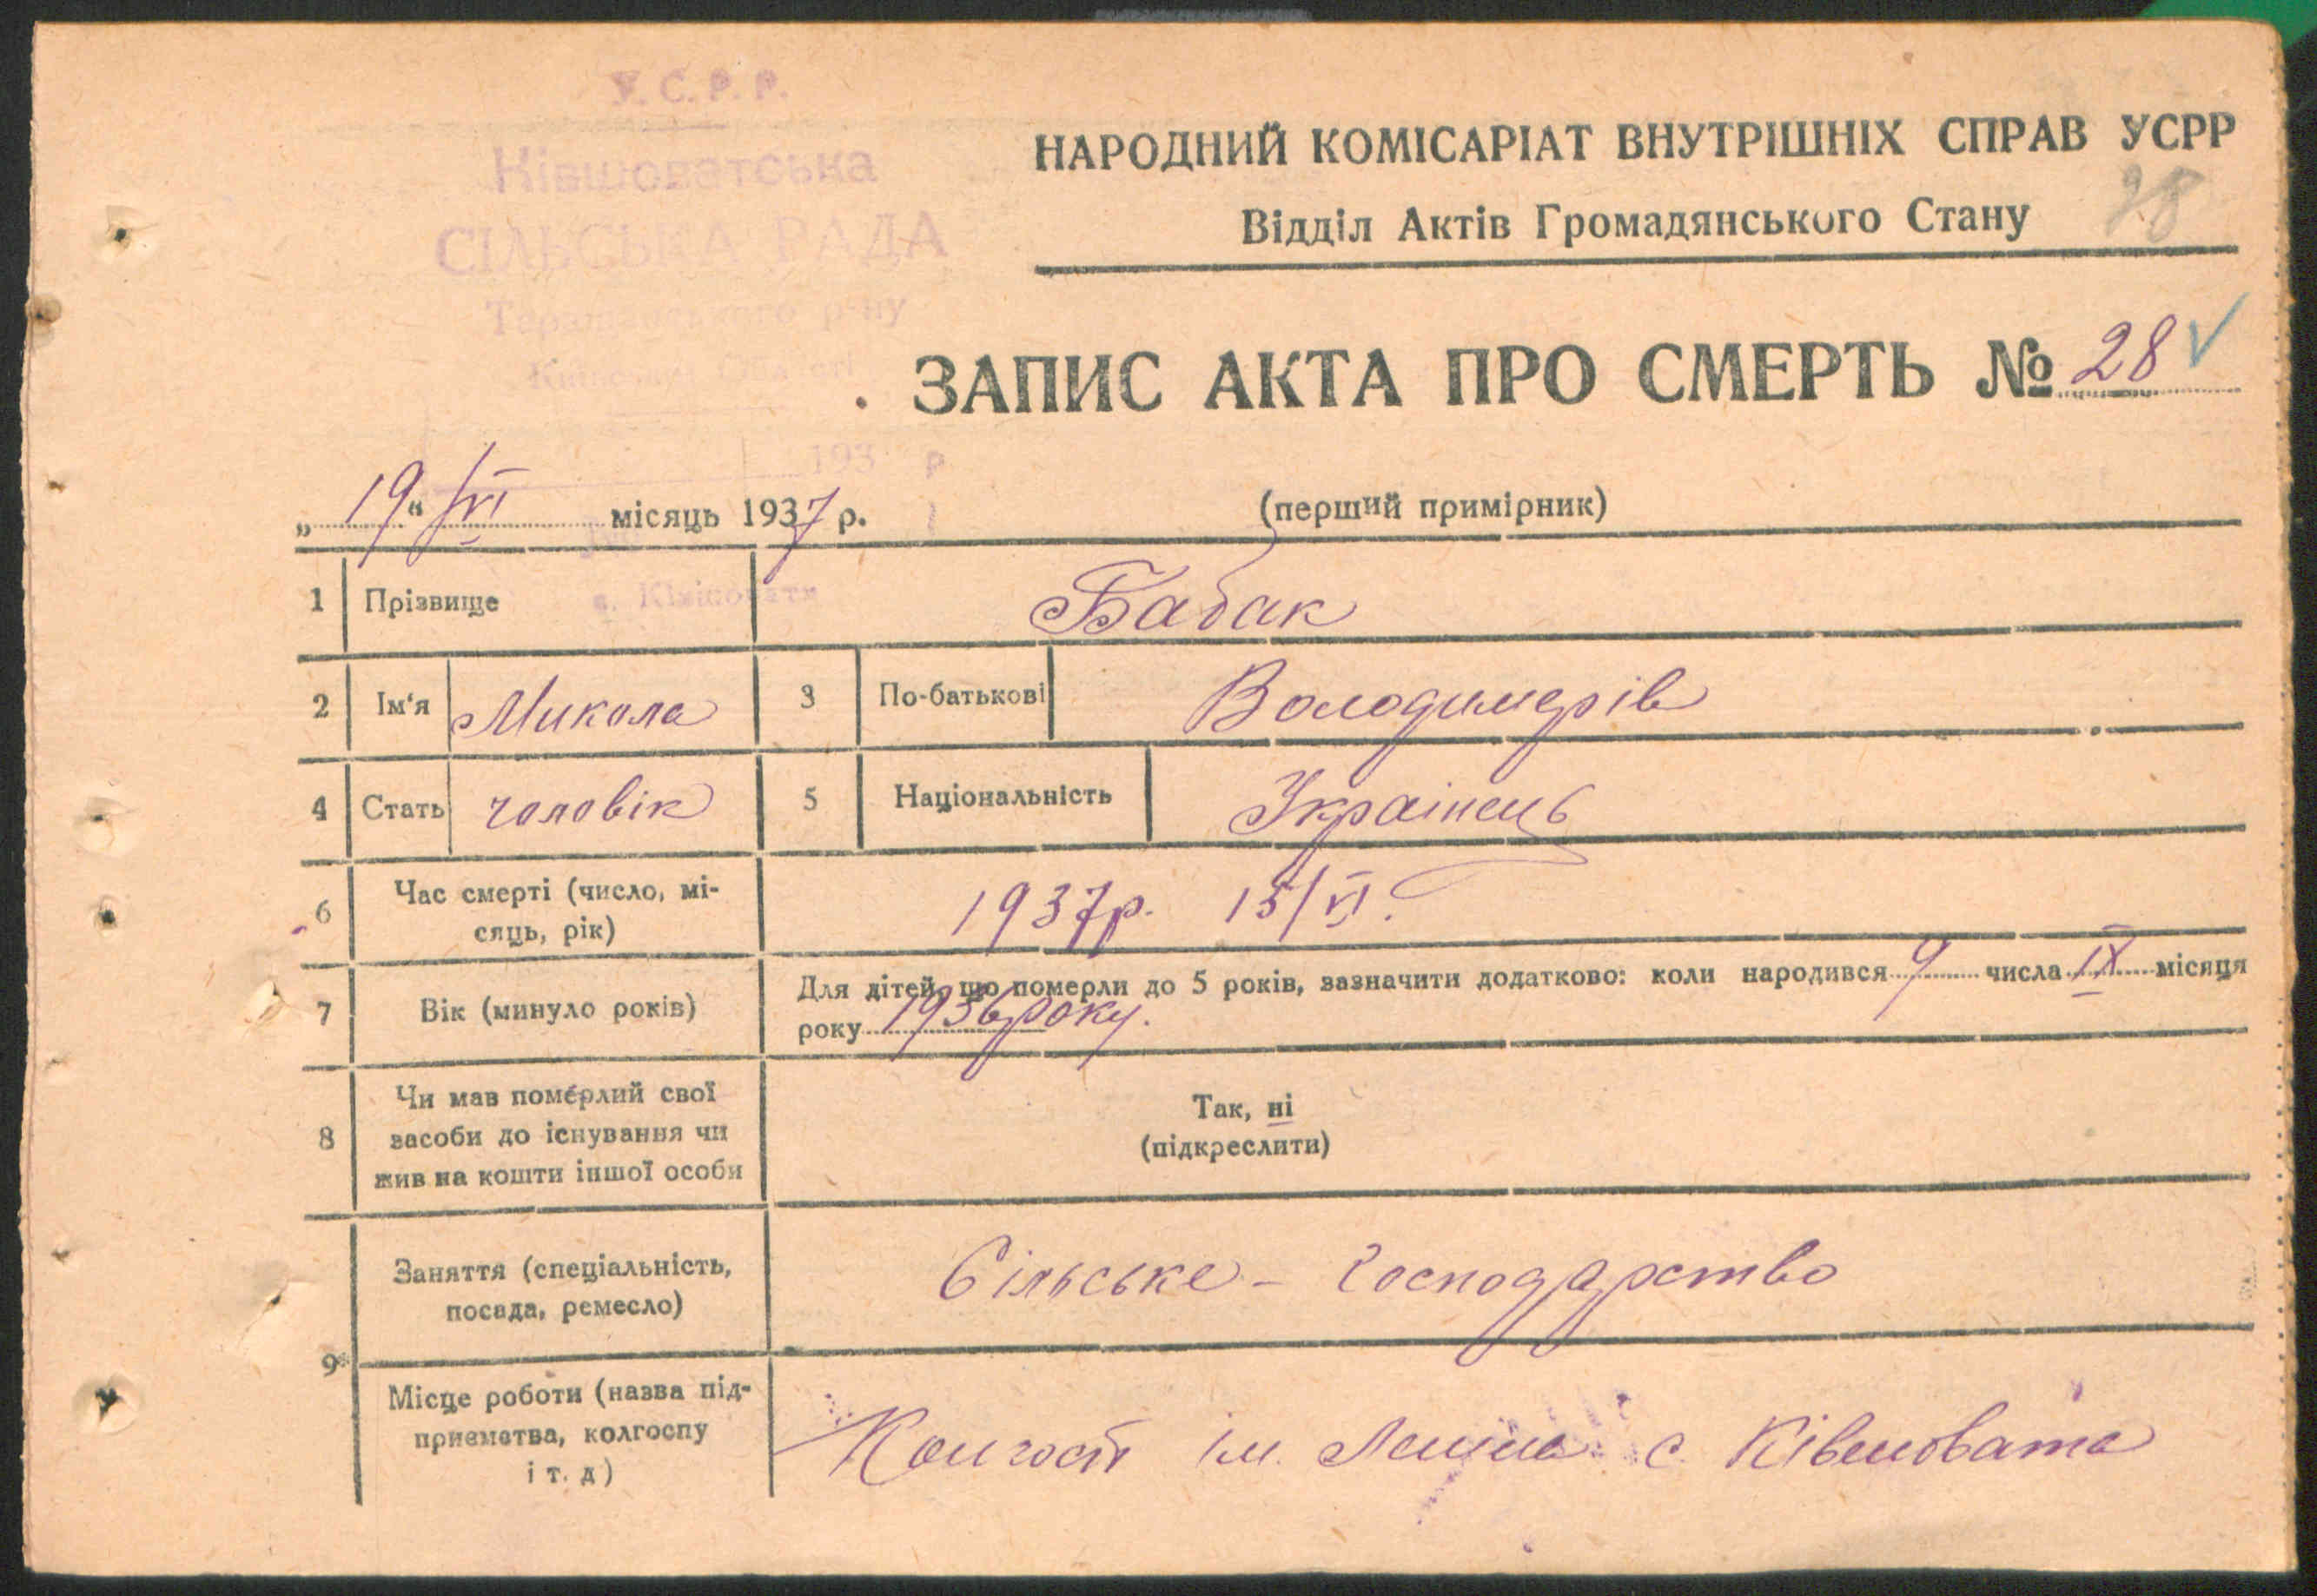 У.С.Р.Р.
Ківшоватська
СІЛЬСЬКА РАДА
Таращанського р-ну
Київської Області
193 р
с. Ківшовата
НАРОДНИЙ КОМІСАРІАТ ВНУТРІШНІХ СПРАВ УСРР
Відділ Актів Громадянського Стану
28
ЗАПИС АКТА ПРО СМЕРТЬ № 28 ✓
„19“ /VI місяць 1937 р. (перший примірник)
1 Прізвище Бабак
2 Ім'я Микола 3 По-батькові Володимерів
4 Стать чоловік 5 Національність Українець
6 Час смерті (число, мі-
сяць, рік) 1937р. 15/VI.
7 Вік (минуло років) Для дітей, що померли до 5 років, зазначити додатково: коли народився 9 числа IX місяця
року 1936 року.
8 Чи мав померлий свої
засоби до існування чи
жив на кошти іншої особи
Так, ні
(підкреслити)
9 Заняття (спеціальність,
посада, ремесло) Сільське - господарство
Місце роботи (назва під-
приємства, колгоспу
і т. д) Колгосп ім. Леніна с. Ківшовата